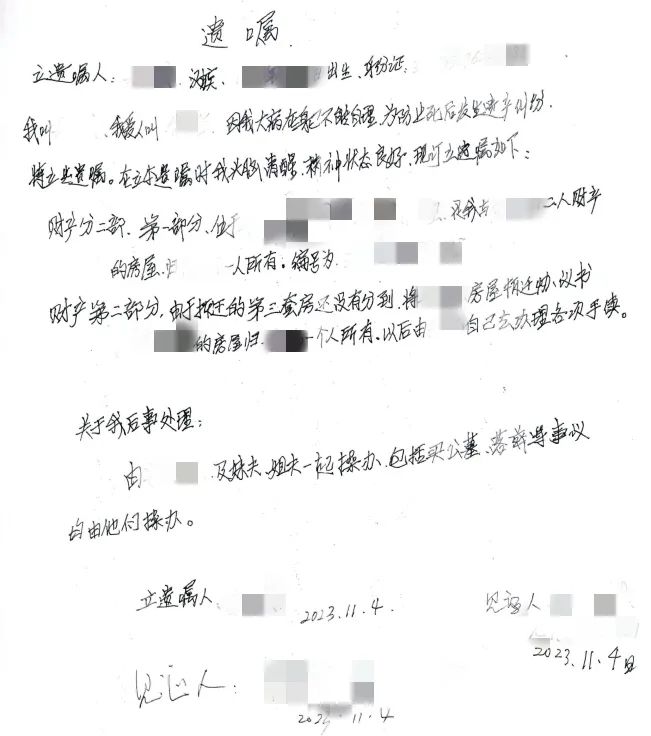 遗嘱
立遗嘱人: 汉族, 出生, 身份证:
我叫 我爱人叫 因我大病在身已不能自理,为防止死后发生遗产纠纷,
特立此遗嘱。在立本遗嘱时我头脑清醒,精神状态良好,现订立遗嘱如下:
财产分二部, 第一部分, 位于 是我与 二人财产
的房屋,归 一人所有。编号为
财产第二部分,由于拆迁的第三套房还没有分到,将 房屋拆迁协议书
的房屋归 一个人所有。以后由 自己去办理各项手续。
关于我后事处理:
由 及妹夫、姐夫一起操办,包括买公墓、落葬等事议
均由他们操办。
立遗嘱人 2023.11.4. 见证人
2023.11.4日
见证人:
2023.11.4